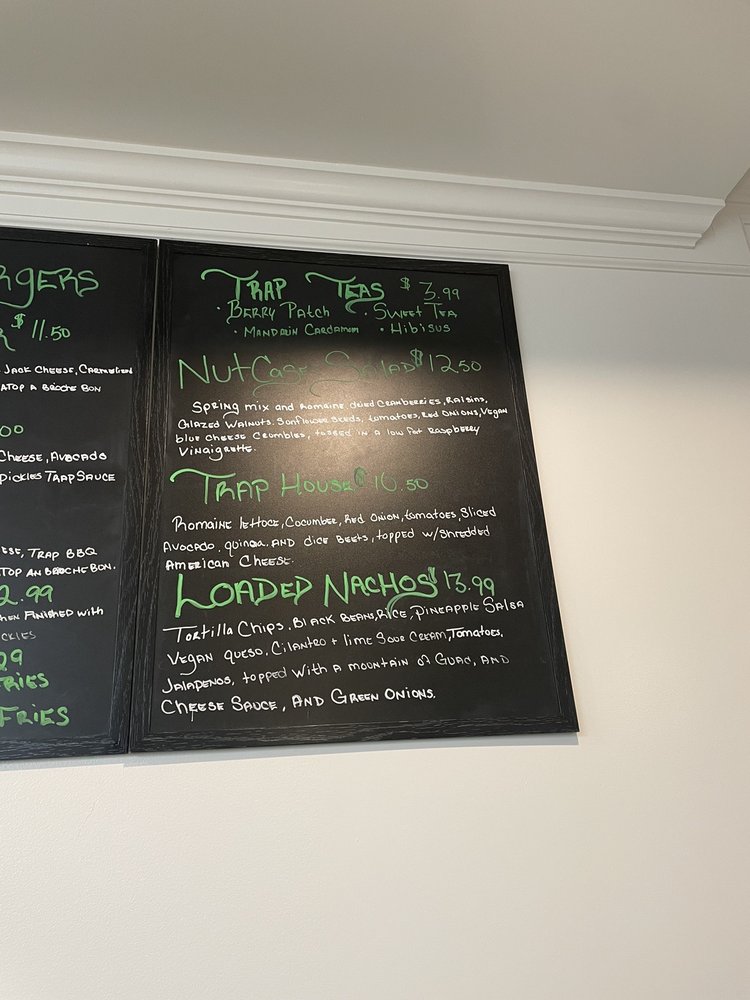 RGERS
R $ 11.50
JACK CHEESE, CARMELIZED
ATOP A BROCHE BON
00
CHEESE, AVOCADO
PICKLES TRAP SAUCE
ESE, TRAP BBQ
TOP AN BROCHE BON.
2.99
HEN FINISHED WITH
CKLES
99
FRIES
FRIES
TRAP TEAS $ 3.99
• BERRY PATCH • SWEET TEA
• MANDRIN CARDAMOM • HIBISUS
NUTCASE SALAD $ 12.50
SPRING MIX AND ROMAINE DRIED CRANBERRIES, RAISINS,
GLAZED WALNUTS. SUNFLOWER SEEDS, TOMATOES, RED ONIONS, VEGAN
BLUE CHEESE CRUMBLES, TOSSED IN A LOW FAT RASPBERRY
VINAIGRETTE.
TRAP HOUSE $ 10.50
ROMAINE LETTUCE, COCUMBER, RED ONION, TOMATOES, SLICED
AVOCADO, QUINOA, AND DICE BEETS, TOPPED W/ SHREDDED
AMERICAN CHEESE.
LOADED NACHOS $ 13.99
TORTILLA CHIPS, BLACK BEANS, RICE, PINEAPPLE SALSA
VEGAN QUESO, CILANTRO + LIME SOUR CREAM, TOMATOES,
JALAPENOS, TOPPED WITH A MOUNTAIN OF GUAC, AND
CHEESE SAUCE, AND GREEN ONIONS.